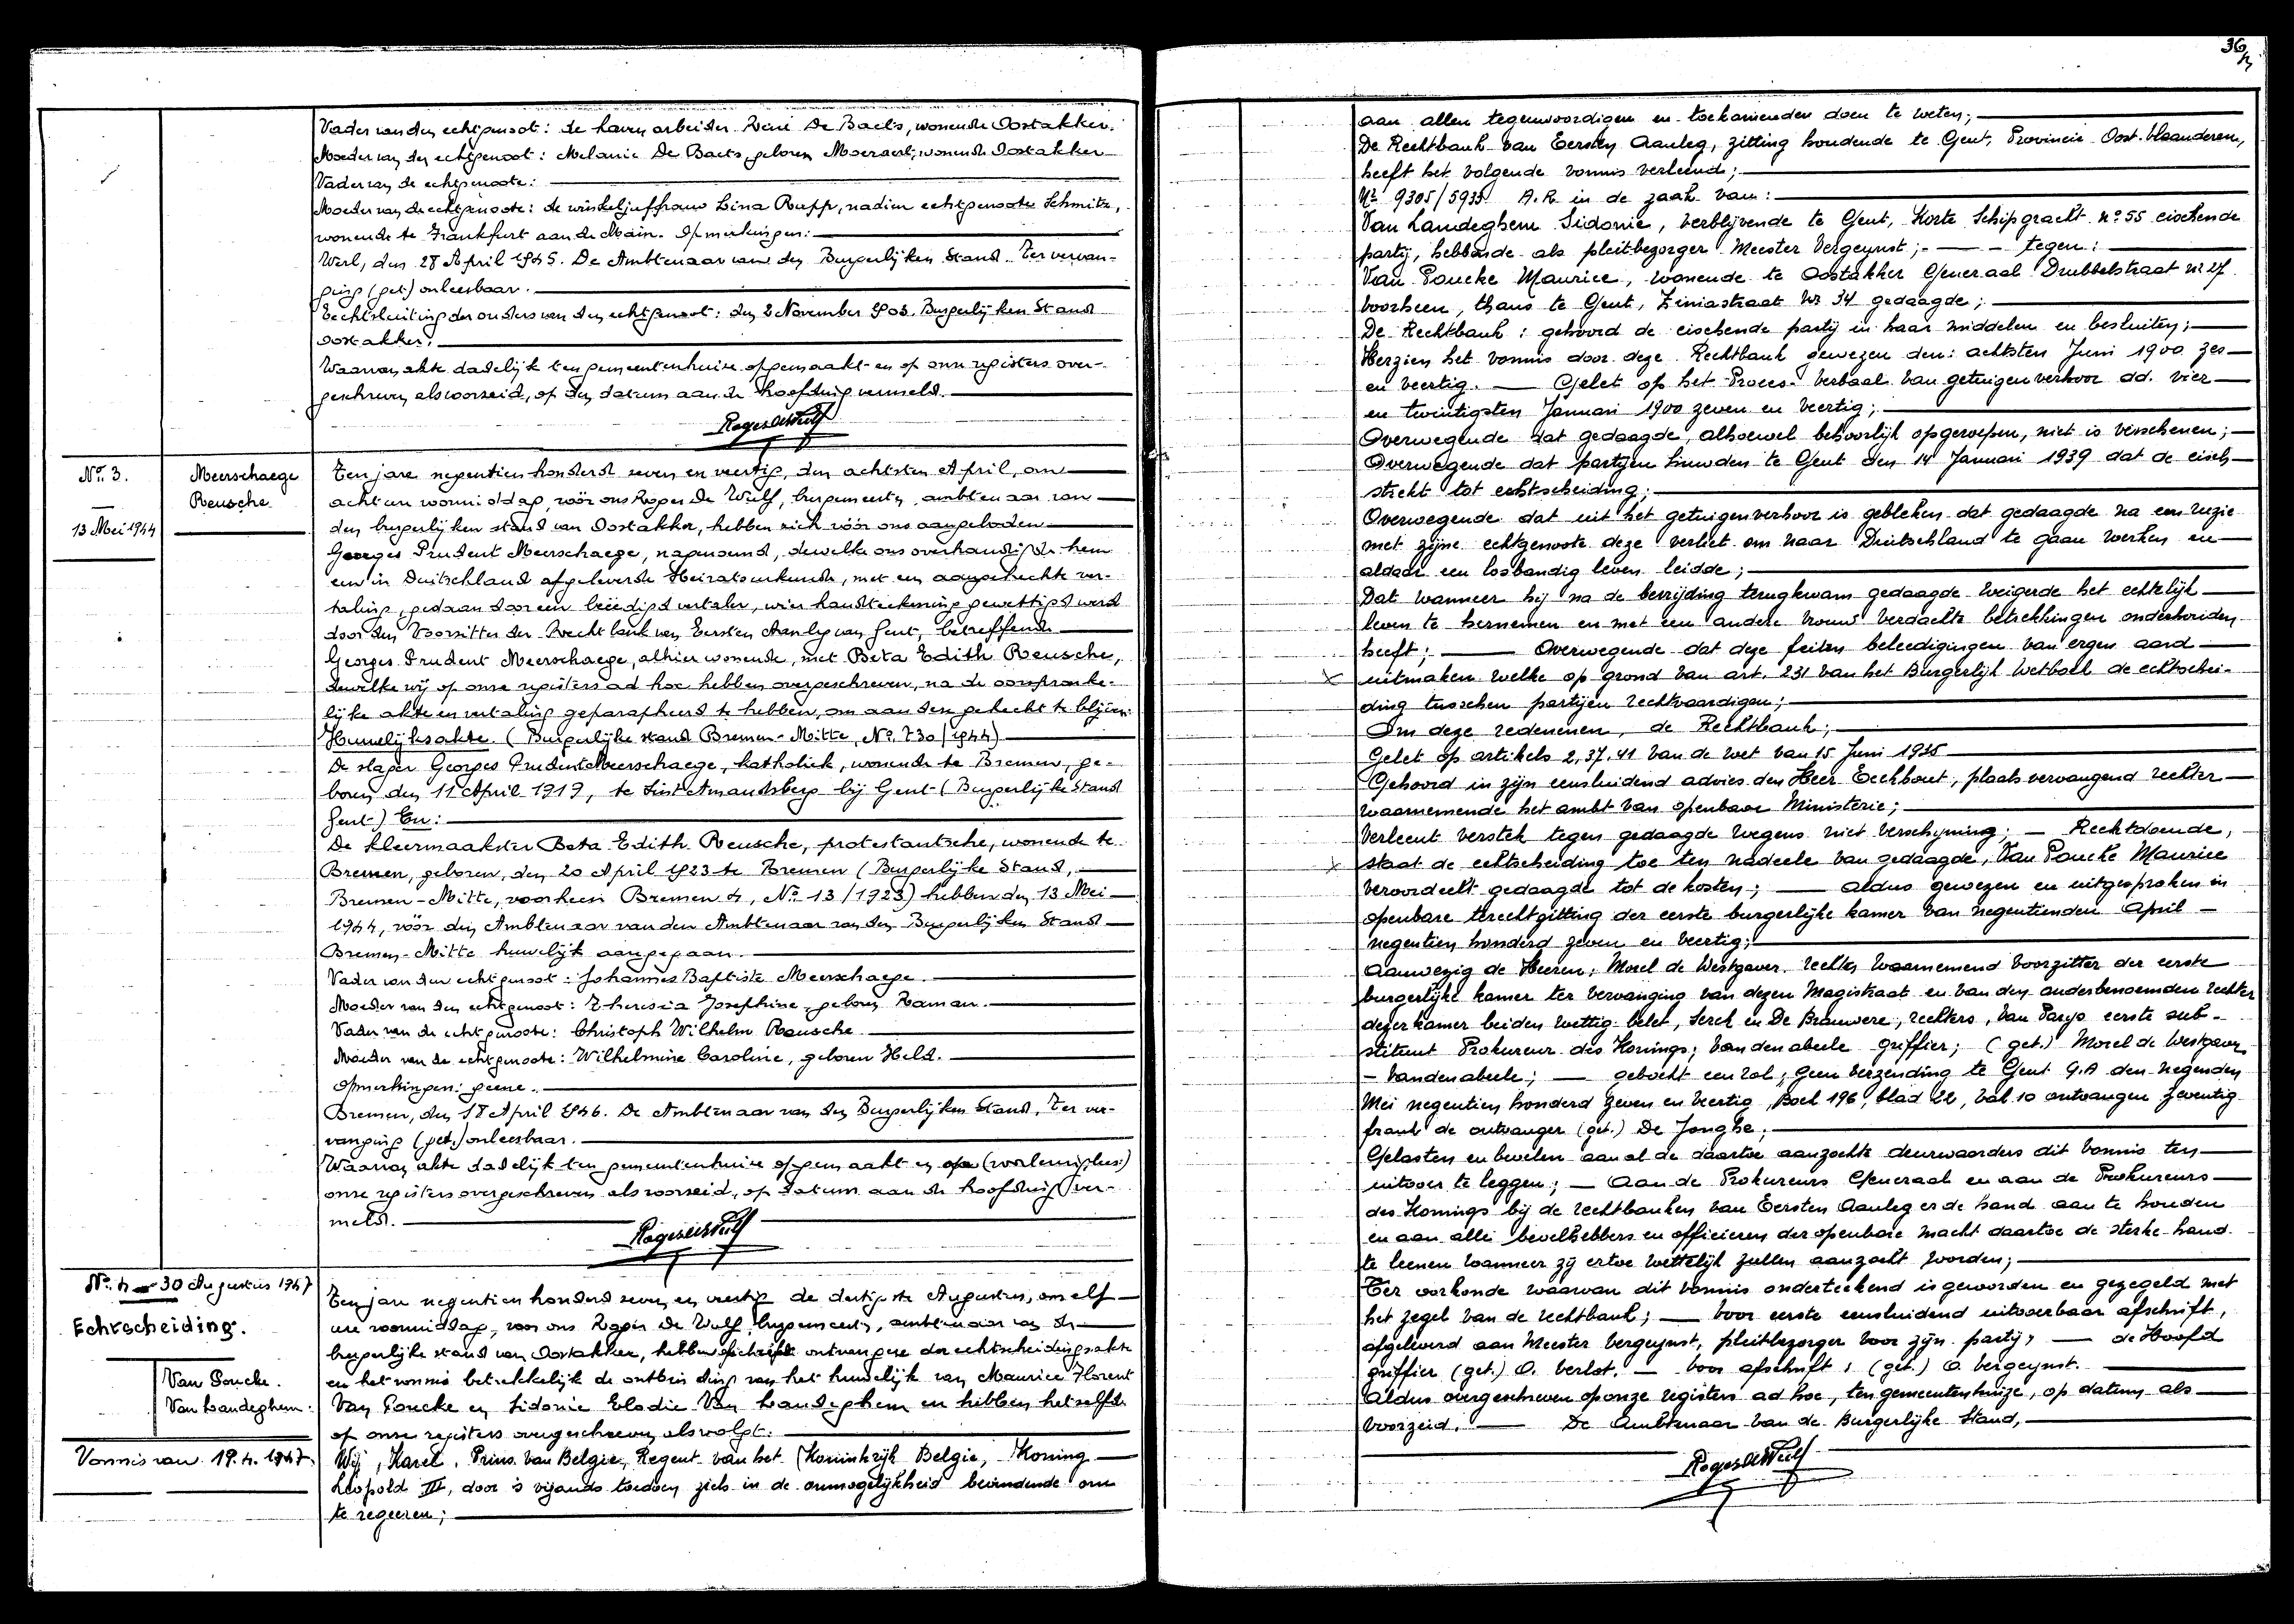 Vader van den echtgenoot: de haven arbeider René De Baets, wonende Oostakker.
Moeder van den echtgenoot: Melanie De Baets, geboren Moeraert, wonende Oostakker
Vader van de echtgenoote:
Moeder van de echtgenoote: de winkeljuffrouw Lina Rupp, nadien echtgenoote Schmitz,
wonende te Frankfurt aan de Main. Opmerkingen:
Werl, den 28 April 1945. De Ambtenaar van den Burgerlijken Stand. Ter vervan-
ging (get.) onleesbaar.
Echtsluiting der ouders van den echtgenoot: den 2 November 1903. Burgerlijken Stand
Oostakker.
Waarvan akte dadelijk ten gemeentenhuize opgemaakt en op onze registers over-
geschreven als voorzeid, op den datum aan de hoofding vermeld.
Roger De Wulf
Nr. 3.
13 Mei 1944
Meerschaege
Reusche
Ten jare negentien honderd zeven en veertig, den achtsten April, om
acht ure voormiddag, vóór ons Roger De Wulf, burgemeester, ambtenaar van
den burgerlijken stand van Oostakker, hebben zich vóór ons aangeboden
Georges Prudent Meerschaege, nagenoemd, dewelke ons overhandigde hem
een in Duitschland afgeleverde Heiratsurkunde, met een aangehechte ver-
taling, gedaan door een beëedigd vertaler, wier handteekening gewettigd werd
door den Voorzitter der Rechtbank van Eersten Aanleg van Gent, betreffende
Georges Prudent Meerschaege, alhier wonende, met Beta Edith Reusche,
dewelke wij op onze registers ad hoc hebben overgeschreven, na de oorspronke-
lijke akte en vertaling geparapheerd te hebben, om aan deze gehecht te blijven.
Huwelijksakte. (Burgerlijke stand Bremen-Mitte, Nr. 730/1944)
De slager Georges Prudent Meerschaege, katholiek, wonende te Bremen, ge-
boren den 11 April 1919, te Sint Amandsberg bij Gent (Burgerlijke Stand
Gent) En:
De kleermaakster Beta Edith Reusche, protestantsche, wonende te
Bremen, geboren, den 20 April 1923 te Bremen (Burgerlijke Stand,
Bremen-Mitte, voorheen Bremen 4, Nr. 13/1923) hebben den 13 Mei
1944, vóór den Ambtenaar van den Ambtenaar van den Burgerlijken Stand
Bremen-Mitte huwelijk aangegaan.
Vader van den echtgenoot: Johannes Baptiste Meerschaege.
Moeder van den echtgenoot: Theresia Josephine, geboren Raman.
Vader van de echtgenoote: Christoph Wilhelm Reusche
Moeder van de echtgenoote: Wilhelmine Caroline, geboren Held.
Opmerkingen: geene.
Bremen, den 18 April 1946. De Ambtenaar van den Burgerlijken Stand, Ter ver-
vanging (get.) onleesbaar.
Waarvan akte dadelijk ten gemeentenhuize opgemaakt en op (voorlezing lees)
onze registers overgeschreven als voorzeid, op datum aan de hoofding ver-
meld.
Roger De Wulf
Nr. 4 30 Augustus 1947
Echtscheiding.
Van Poucke.
Van Landeghem.
Vonnis van 19.4.1947.
Ten jare negentien honderd zeven en veertig de dertigste Augustus, om elf
ure voormiddag, voor ons Roger De Wulf, burgemeester, ambtenaar van de
burgerlijke stand van Oostakker, hebben afschrift ontvangen der echtscheidingsakte
en het vonnis betrekkelijk de ontbinding van het huwelijk van Maurice Florent
Van Poucke en Sidonie Elodie Van Landeghem en hebben hetzelfde
op onze registers overgeschreven als volgt:
Wij, Karel, Prins van Belgie, Regent van het Koninkrijk Belgie, Koning
Leopold III, door 's vijands toedoen zich in de onmogelijkheid bevindende om
te regeeren;
36
aan allen tegenwoordigen en toekomenden doen te weten;
De Rechtbank van Eersten Aanleg, zitting houdende te Gent, Provincie Oost-Vlaanderen,
heeft het volgende vonnis verleend;
Nr. 9305/5935 A.R. in de zaak van:
Van Landeghem Sidonie, verblijvende te Gent, Korte Schipgracht nr. 55 eischende
partij, hebbende als pleitbezorger Meester Vergeynst; tegen:
Van Poucke Maurice, wonende te Oostakker Generaal Drubbelstraat nr 27
voorheen, thans te Gent, Ziniastraat Nr 34 gedaagde;
De Rechtbank: gehoord de eischende partij in haar middelen en besluiten;
Herzien het vonnis door deze Rechtbank gewezen den: achtsten Juni 1900 zes
en veertig. Gelet op het Proces-Verbaal van getuigenverhoor dd. vier
en twintigsten Januari 1900 zeven en veertig;
Overwegende dat gedaagde, alhoewel behoorlijk opgeroepen, niet is verschenen;
Overwegende dat partijen huwden te Gent den 14 Januari 1939 dat de eisch
strekt tot echtscheiding;
Overwegende dat uit het getuigenverhoor is gebleken dat gedaagde na een ruzie
met zijne echtgenoote deze verliet om naar Duitschland te gaan werken en
aldaar een losbandig leven leidde;
Dat wanneer hij na de bevrijding terugkwam gedaagde weigerde het echtelijk
leven te hernemen en met een andere vrouw verdachte betrekkingen onderhouden
heeft; Overwegende dat deze feiten beleedigingen van ergen aard
uitmaken welke op grond van art. 231 van het Burgerlijk Wetboek de echtschei-
ding tusschen partijen rechtvaardigen;
Om deze redenenen, de Rechtbank;
Gelet op artikels 2, 37, 41 van de wet van 15 Juni 1935
Gehoord in zijn eensluidend advies den Heer Eeckhout, plaatsvervangend rechter
waarnemende het ambt van openbaar Ministerie;
Verleent verstek tegen gedaagde wegens niet verschijning; Rechtdoende,
staat de echtscheiding toe ten nadeele van gedaagde, Van Poucke Maurice
veroordeelt gedaagde tot de kosten; aldus gewezen en uitgesproken in
openbare terechtzitting der eerste burgerlijke kamer van negentienden April
negentien honderd zeven en veertig;
Aanwezig de Heeren; Morel de Westgaver. rechter waarnemend voorzitter der eerste
burgerlijke kamer ter vervanging van dezen Magistraat en van den anderbenoemden rechter
dezer kamer beiden wettig belet, Serck en De Brauwere, rechters, Van Parys eerste sub-
stituut Prokureur des Konings; Vandenabeele griffier; (get.) Morel de Westgaver
- Vandenabeele; geboekt een rol, geen verzending te Gent G.A den negenden
Mei negentien honderd zeven en veertig, Boek 196, blad 22, vak 10 ontvangen zeventig
frank de ontvanger (get.) De Jonghe;
Gelasten en bevelen aan al de daartoe aanzochte deurwaarders dit vonnis ten
uitvoer te leggen; Aan de Prokureurs Generaal en aan de Prokureurs
des Konings bij de rechtbanken van Eersten Aanleg er de hand aan te houden
en aan alle bevelhebbers en officieren der openbare macht daartoe de sterke hand
te leenen wanneer zij ertoe wettelijk zullen aanzocht worden;
Ter oorkonde waarvan dit vonnis onderteekend is geworden en gezegeld met
het zegel van de rechtbank; voor eerste eensluidend uitvoerbaar afschrift,
afgeleverd aan Meester Vergeynst, pleitbezorger voor zijn partij, de Hoofd
griffier (get.) O. Verlot. voor afschrift, (get.) O. Vergeynst.
Aldus overgeschreven op onze registers ad hoc, ten gemeentenhuize, op datum als
voorzeid. De Ambtenaar van de Burgerlijke Stand,
Roger De Wulf